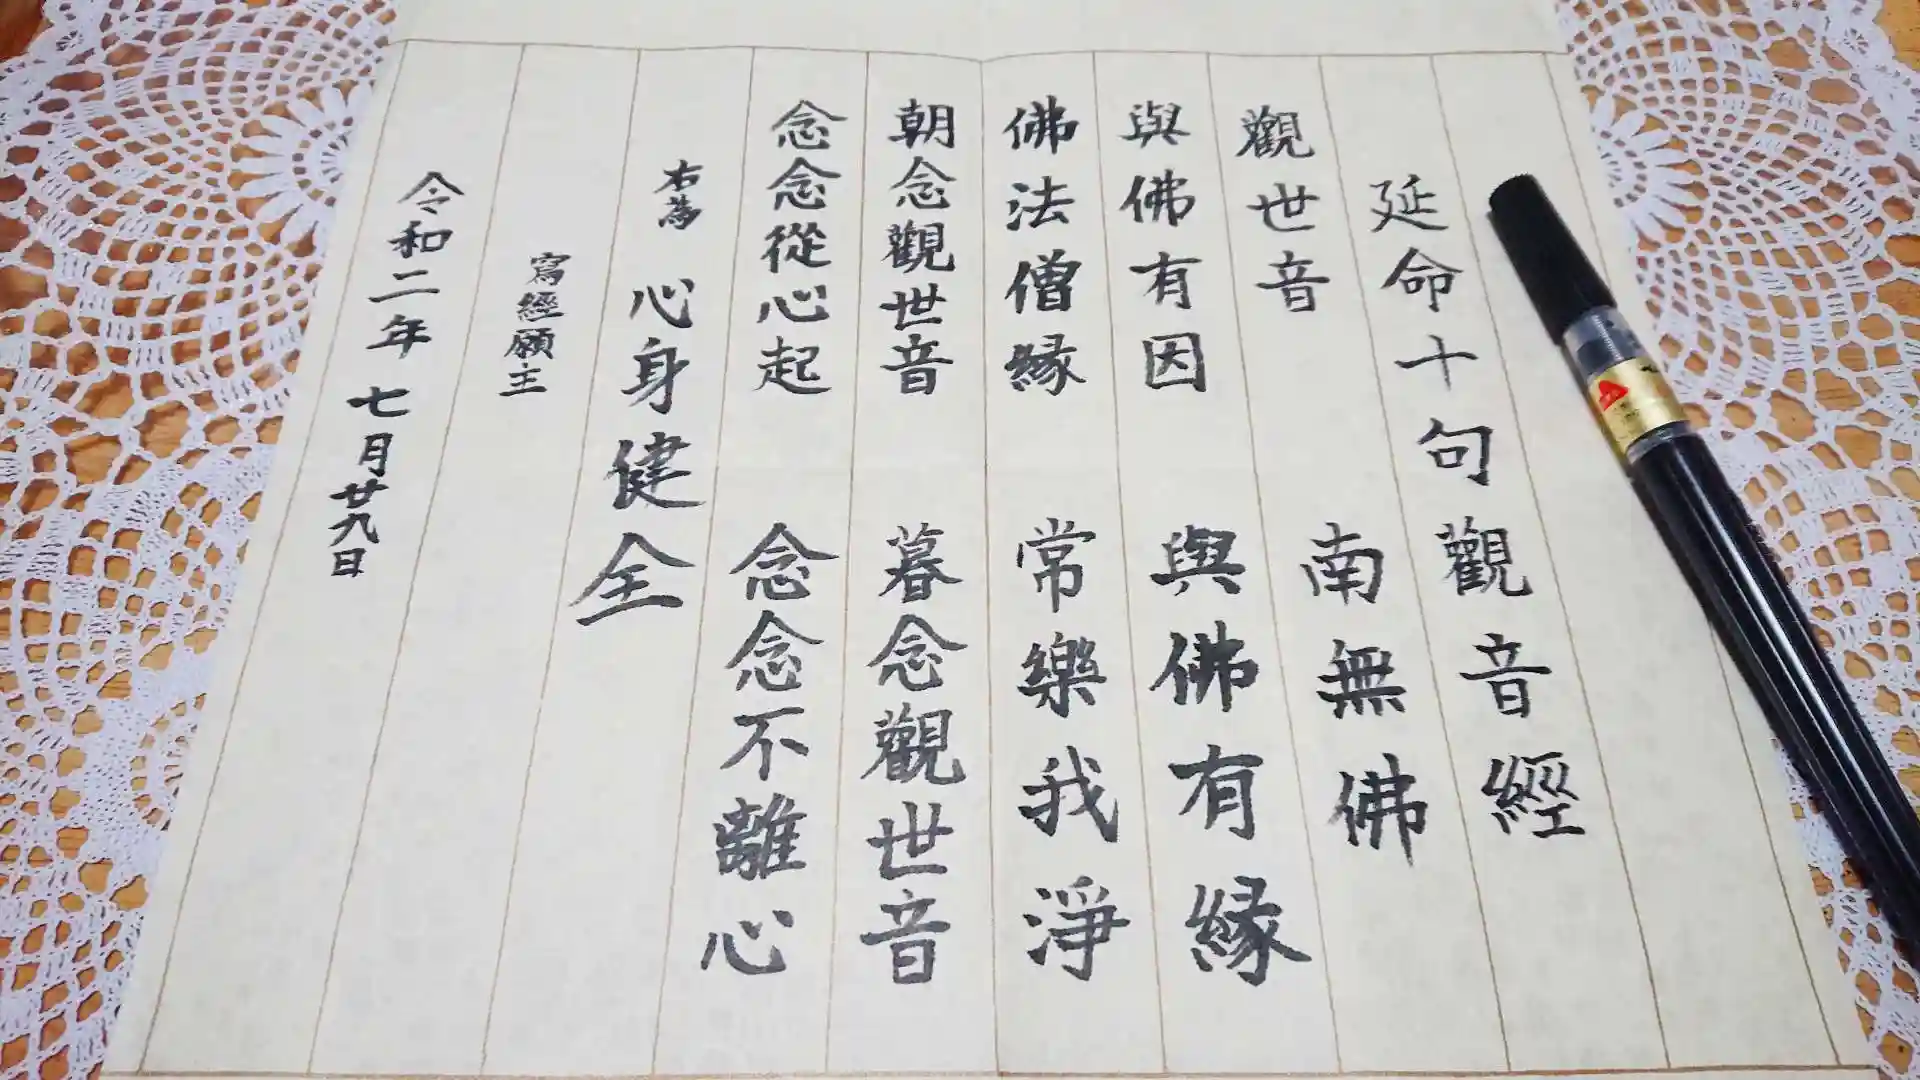 延命十句觀音經
觀世音　南無佛
與佛有因　與佛有縁
佛法僧縁　常樂我淨
朝念觀世音　暮念觀世音
念念從心起　念念不離心
右為　心身健全
寫經願主
令和二年七月廿九日